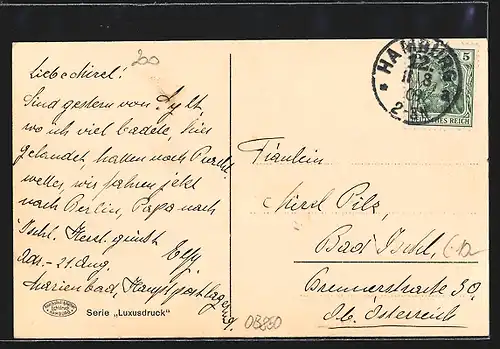 200
Liebe Mirzl!
Sind gestern von Sylt,
wo ich viel badete, hier
gelandet, hatten noch Pracht-
wetter, wir fahren jetzt
nach Berlin, Papa nach
Ischl. Herzl. grüsst
Adr. - 21. Aug. Elly
Marienbad, Hauptpostlagernd.
Serie „Luxusdruck"
HAMBURG
22.
2-3N
5
DEUTSCHES REICH
Fräulein
Mirzl Pilz,
Bad Ischl,
Brennerstraße 30,
Ob. Österreich
OB850